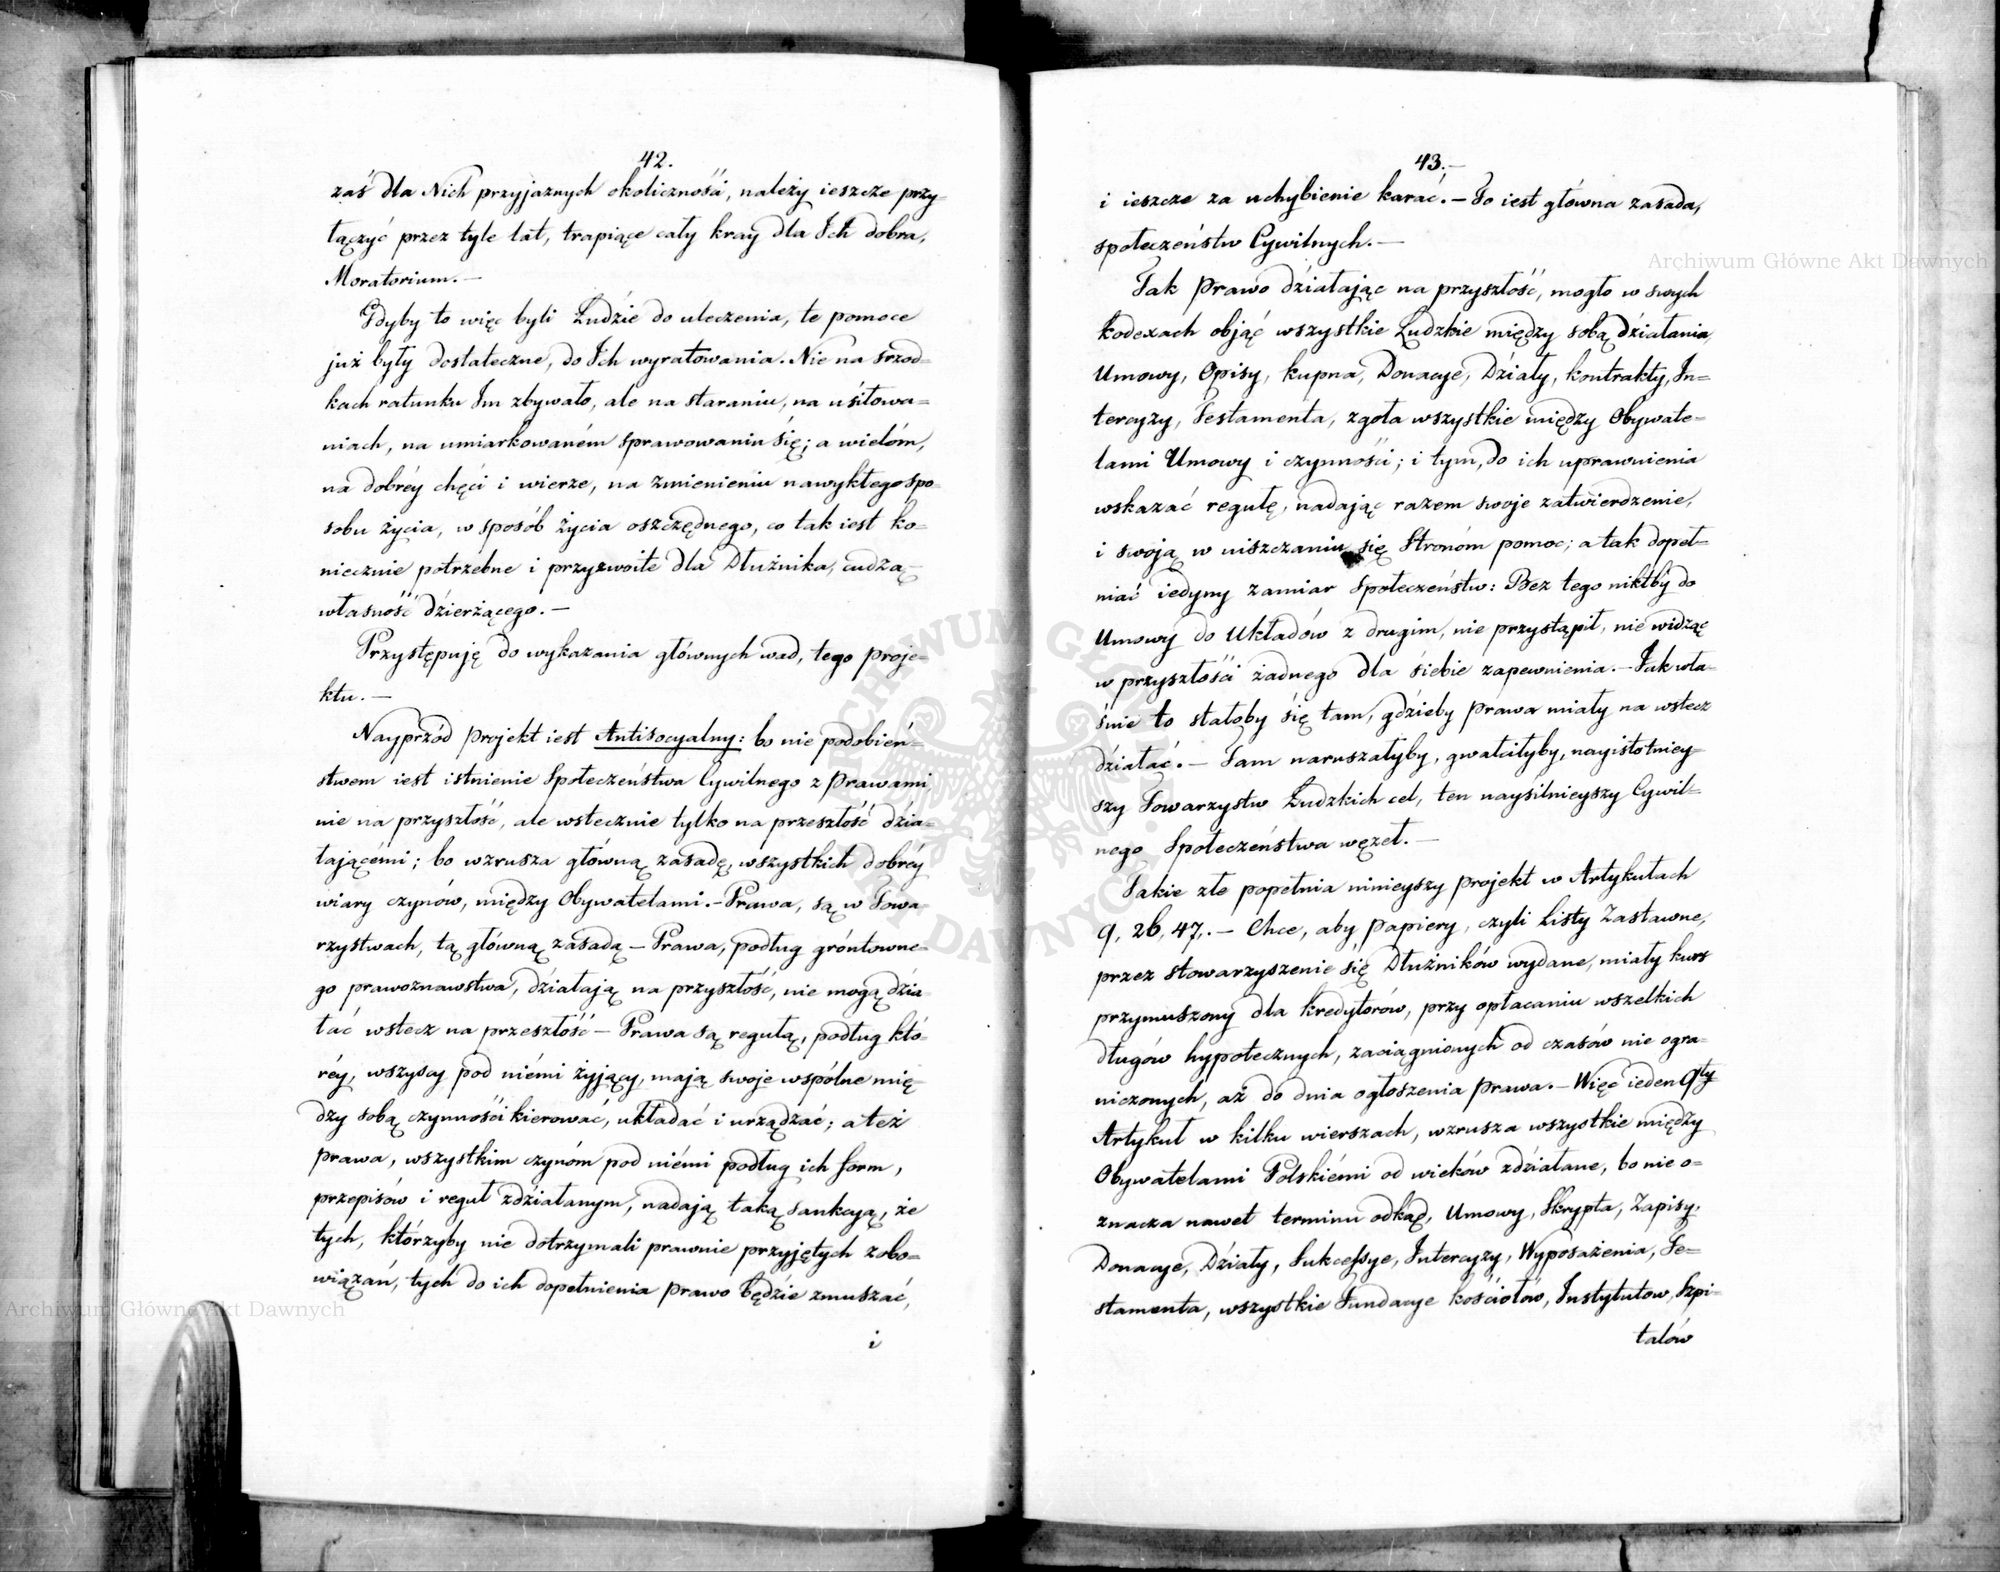 42.
zaś dla Nich przyjaznych okoliczności, należy ieszcze przy-
łączyć przez tyle lat, trapiące cały kray dla Ich dobra,
Moratorium. —
Gdyby to więc byli Ludzie do uleczenia, te pomoce
już były dostateczne, do Ich wyratowania. Nie na srzod-
kach ratunku Im zbywało, ale na staraniu, na usiłowa=
niach, na umiarkowaném sprawowaniu się; a wielóm,
na dobréy chęci i wierze, na zmienieniu nawykłego spo-
sobu życia, w sposób życia oszczędnego, co tak iest ko=
niecznie potrzebne i przyzwoite dla Dłużnika, cudzą
własność dzierżącego. —
Przystępuję do wykazania głównych wad, tego proje=
ktu. —
Nayprzód projekt iest Antisocyalny: bo nie podobień-
stwem iest istnienie Społeczeństwa Cywilnego z Prawami
nie na przyszłość, ale wstecznie tylko na przeszłość dzia=
łającémi; bo wzrusza główną zasadę, wszystkich dobréy
wiary czynów, między Obywatelami. – Prawa, są w Towa-
rzystwach, tą główną zasadą — Prawa, podług gróntowne-
go prawoznawstwa, działają na przyszłość, nie mogą dzia-
łać wstecz na przeszłość — Prawa są regułą, podług któ-
réy, wszyscy pod niémi żyjący, mają swoje wspólne mię-
dzy sobą czynności kierować, układać i urządzać; a też
prawa, wszystkim czynóm pod niémi podług ich form,
przepisów i reguł zdziałanym, nadają taką sankcyą, że
tych, którzyby nie dotrzymali prawnie przyjętych zobo=
wiązań, tych do ich dopełnienia prawo będzie zmuszać,
i
43. —
i ieszcze za uchybienie karać. — To iest główna zasada,
społeczeństw Cywilnych. —
Tak Prawo działając na przyszłość, mogło w swych
kodexach objąć wszystkie Ludzkie między sobą działania,
Umowy, Opisy, kupna, Donacye, Działy, kontrakty, In=
tercyzy, Testamenta, zgoła wszystkie między Obywate=
lami Umowy i czynności; i tym, do ich uprawnienia
wskazać regułę, nadając razem swoje zatwierdzenie,
i swoją w uiszczaniu się Stronóm pomoc; a tak dopeł=
niać iedyny zamiar Społeczeństw: Bez tego niktby do
Umowy do Układów z drugim, nie przystąpił, nie widząc
w przyszłości żadnego dla siebie zapewnienia. — Tak wła-
śnie to stałoby się tam, gdzieby Prawa miały na wstecz
działać. — Tam naruszałyby, gwałciłyby, nayistotniey=
szy Towarzystw Ludzkich cel, ten naysilnieyszy Cywil=
nego Społeczeństwa węzeł. —
Takie złe popełnia ninieyszy projekt w Artykułach
9, 26, 47,. — Chce, aby Papiery, czyli Listy Zastawne,
przez stowarzyszenie się Dłużników wydane, miały kurs
przymuszony dla kredytorów, przy opłacaniu wszelkich
długów hypotecznych, zaciągnionych od czasów nie ogra=
niczonych, aż do dnia ogłoszenia Prawa. — Więc ieden 9ty
Artykuł w kilku wierszach, wzrusza wszystkie między
Obywatelami Polskiémi od wieków zdziałane, bo nie o=
znacza nawet terminu odkąd, Umowy, Skrypta, Zapisy,
Donacye, Działy, Sukcessye, Intercyzy, Wyposażenia, Te=
stamenta, wszystkie Fundacye kościołów, Instytutow, Szpi-
talów
Archiwum Główne Akt Dawnych
Archiwum Główne Akt Dawnych
ARCHIWUM GŁÓWNE AKT DAWNYCH